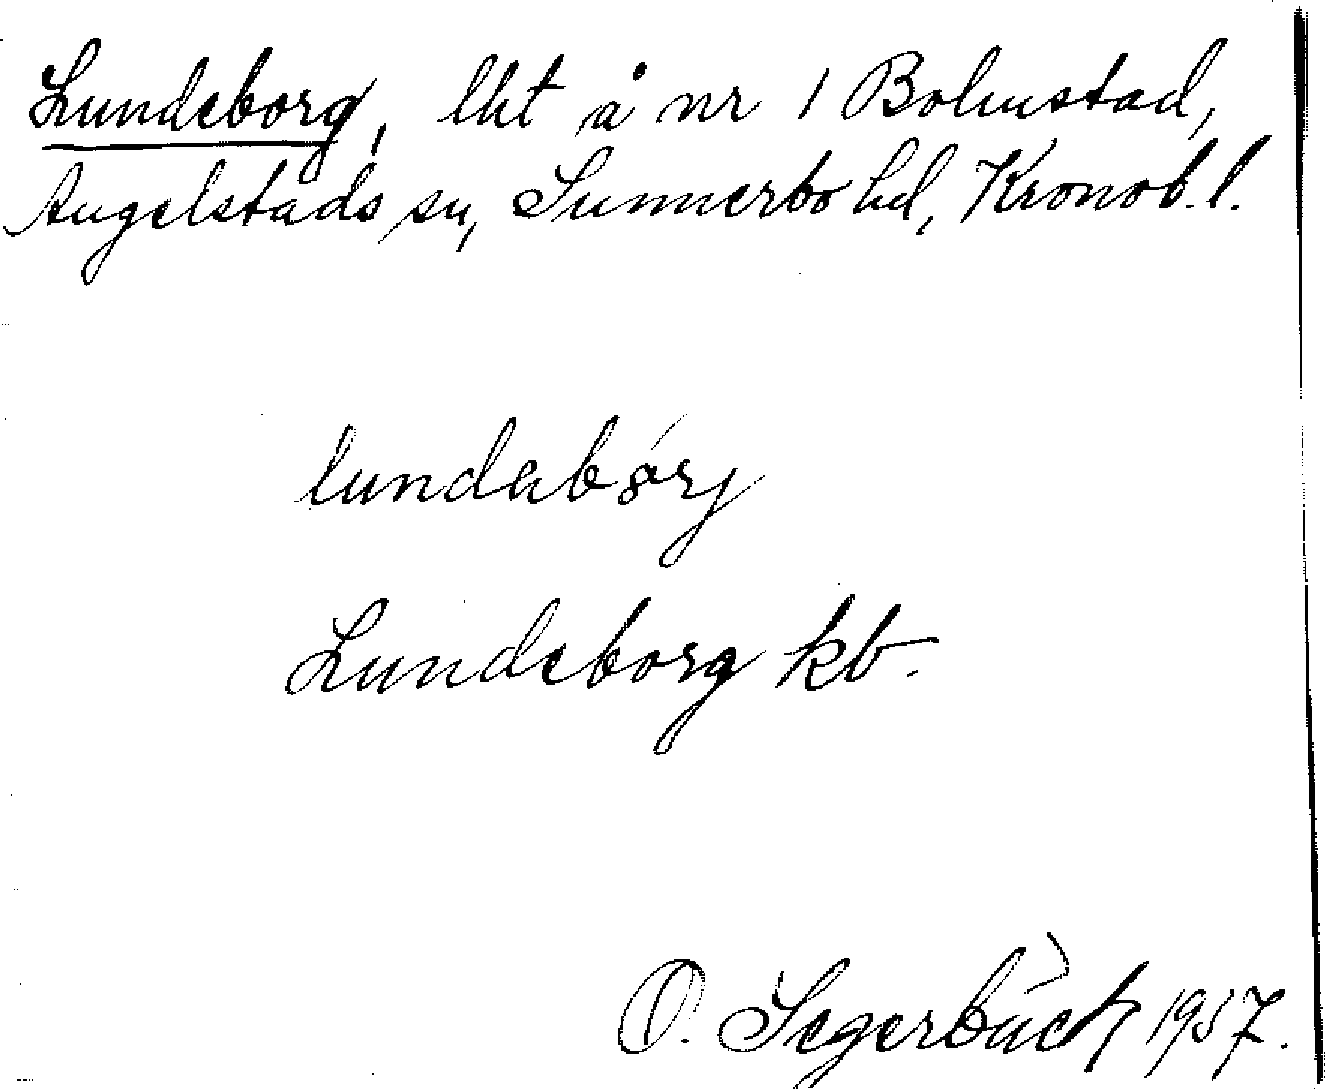 Lundeborg, lht å nr 1 Bolmstad,
Angelstads sn, Sunnerbo hd, Kronob. l.
lundabórj
Lundeborg kb.
O. Segerbäck 1957.